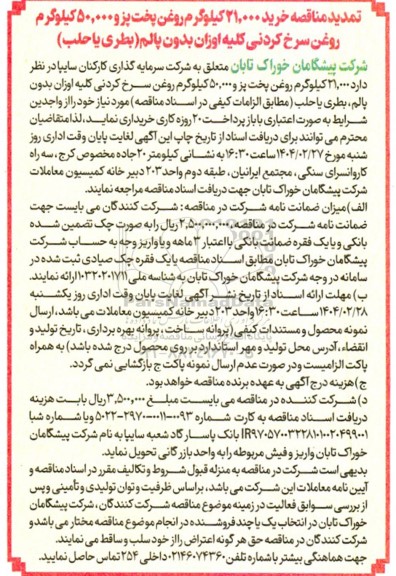 تمدید مناقصه خرید ۲۱,۰۰۰ کیلوگرم روغن پخت پز و ۵۰,۰۰۰ کیلوگرم
روغن سرخ کردنی کلیه اوزان بدون پالم (بطری یا حلب)
شرکت پیشگامان خوراک تابان متعلق به شرکت سرمایه گذاری کارکنان سایپا در نظر
دارد ۲۱,۰۰۰ کیلوگرم روغن پخت پز و ۵۰,۰۰۰ کیلوگرم روغن سرخ کردنی کلیه اوزان بدون
پالم، بطری یا حلب (مطابق الزامات کیفی در اسناد مناقصه) مورد نیاز خود را از واجدین
شرایط به صورت اعتباری با باز پرداخت ۲۰ روزه کاری خریداری نماید، لذا متقاضیان
محترم می توانند برای دریافت اسناد از تاریخ چاپ این آگهی لغایت پایان وقت اداری روز
شنبه مورخ ۱۴۰۴/۰۲/۲۷ ساعت ۱۶:۳۰ به نشانی کیلومتر ۲۰ جاده مخصوص کرج، سه راه
کاروانسرای سنگی، مجتمع ایرانیان، طبقه دوم واحد ۲۰۳ دبیر خانه کمیسیون معاملات
شرکت پیشگامان خوراک تابان جهت دریافت اسناد مناقصه مراجعه نمایند.
الف) میزان ضمانت نامه شرکت در مناقصه: شرکت کنندگان می بایست جهت
ضمانت نامه شرکت در مناقصه ۲,۵۰۰,۰۰۰,۰۰۰ ریال را به صورت چک تضمین شده
بانکی و یا یک فقره ضمانت بانکی با اعتبار ۳ ماهه و یا واریز وجه به حساب شرکت
پیشگامان خوراک تابان مطابق اسناد مناقصه یا یک فقره چک صیادی ثبت شده در
سامانه در وجه شرکت پیشگامان خوراک تابان به شناسه ملی ۱۰۳۲۰۲۰۱۷۱۱ ارائه نمایند.
ب) مهلت ارائه اسناد از تاریخ نشر آگهی لغایت پایان وقت اداری روز یکشنبه
۱۴۰۴/۰۲/۲۸ ساعت ۱۶:۳۰ واحد ۲۰۳ دبیر خانه کمیسیون معاملات می باشد، ارسال
نمونه محصول و مستندات کیفی (پروانه ساخت، پروانه بهره برداری، تاریخ تولید و
انقضاء، آدرس محل تولید و مهر استاندارد بر روی محصول درج شده باشد) به همراه
پاکت الزامیست و در صورت عدم ارسال نمونه پاکت ج بازگشایی نمی گردد.
ج) هزینه درج آگهی به عهده برنده مناقصه خواهد بود.
د) شرکت کننده در مناقصه می بایست مبلغ ۳,۵۰۰,۰۰۰ ریال بابت هزینه
دریافت اسناد مناقصه به کارت شماره ۵۰۲۲-۲۹۷۰-۰۰۱۱-۰۰۹۳ و یا شماره شبا
بانک پاسارگاد شعبه سایپا به نام شرکت پیشگامان
خوراک تابان واریز و فیش مربوطه را به واحد بازرگانی تحویل نماید.
بدیهی است شرکت در مناقصه به منزله قبول شروط و تکالیف مقرر در اسناد مناقصه و
آیین نامه معاملات این شرکت می باشد، براساس ظرفیت و توان تولیدی و تأمینی و پس
از بررسی سوابق فعالیت در زمینه موضوع مناقصه شرکت کنندگان، شرکت پیشگامان
خوراک تابان در انتخاب یک یا چند فروشنده در انجام موضوع مناقصه مختار می باشد و
شرکت کنندگان در مناقصه حق هر گونه اعتراض را از خود سلب و ساقط می نمایند.
جهت هماهنگی بیشتر با شماره تلفن ۰۲۱۴۶۰۷۴۳۶۰ داخلی ۲۵۴ تماس حاصل نمایید.